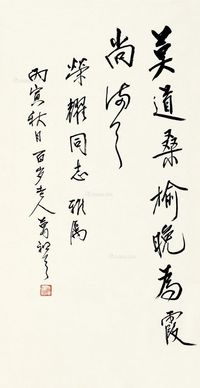 莫道桑榆晚为霞
尚满天
荣耀同志雅属
丙寅秋日百岁老人